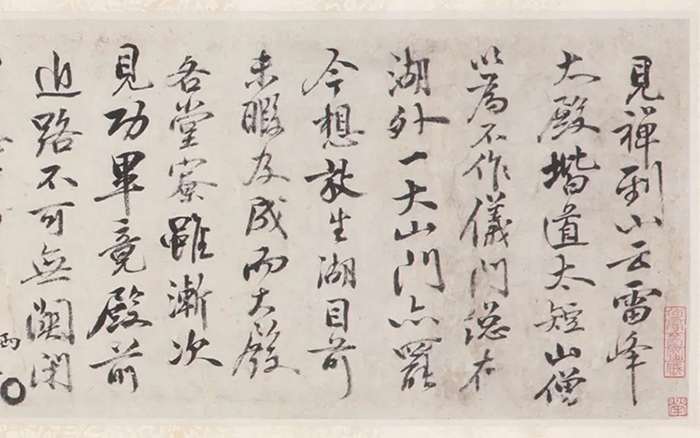 見禪到山云雷峰
大殿堦道太短山僧
以為不作儀門總在
湖外一大山門亦罷
今想放生湖目前
未暇及成而大殿
各堂寮雖漸次
見功畢竟殿前
道路不可無闌閑